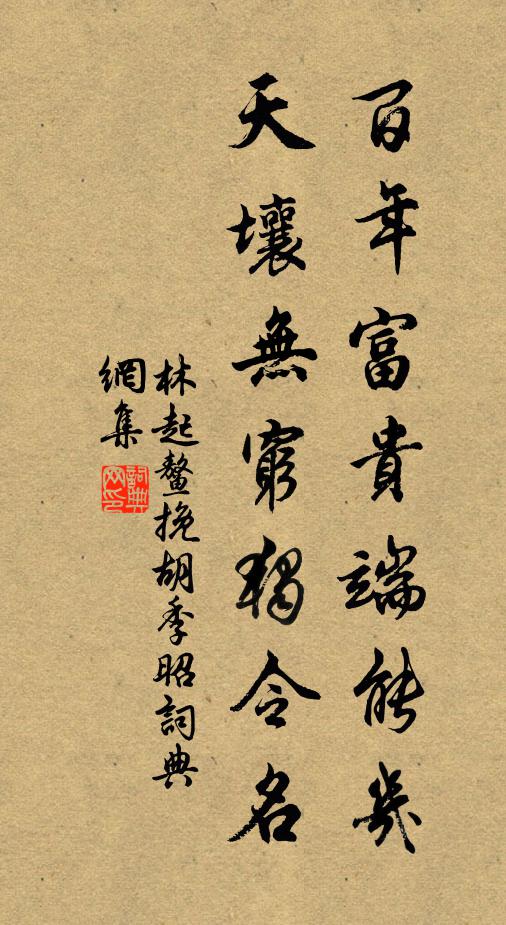 百年富貴端能幾
天壤無窮獨令名
林起鰲挽胡季昭詞典
網集
詞典網印